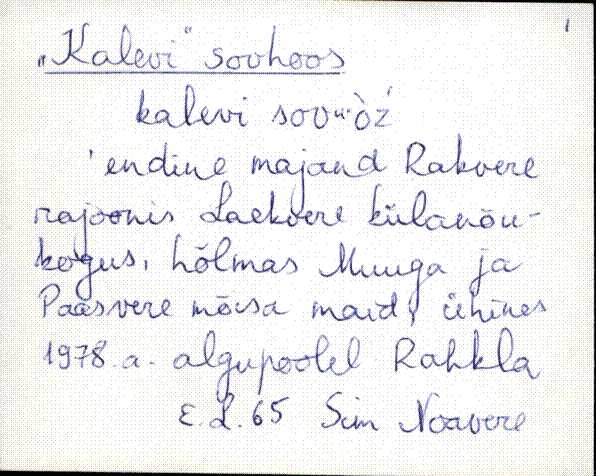 1
„Kalevi" sovhoos
kalevi
'endine majand Rakvere
rajoonis Laekvere külanõu-
kogus, hõlmas Muuga ja
Paasvere mõisa maid, ühines
1978.a. algupoolel Rahkla
E.L. 65 Sim Noavere